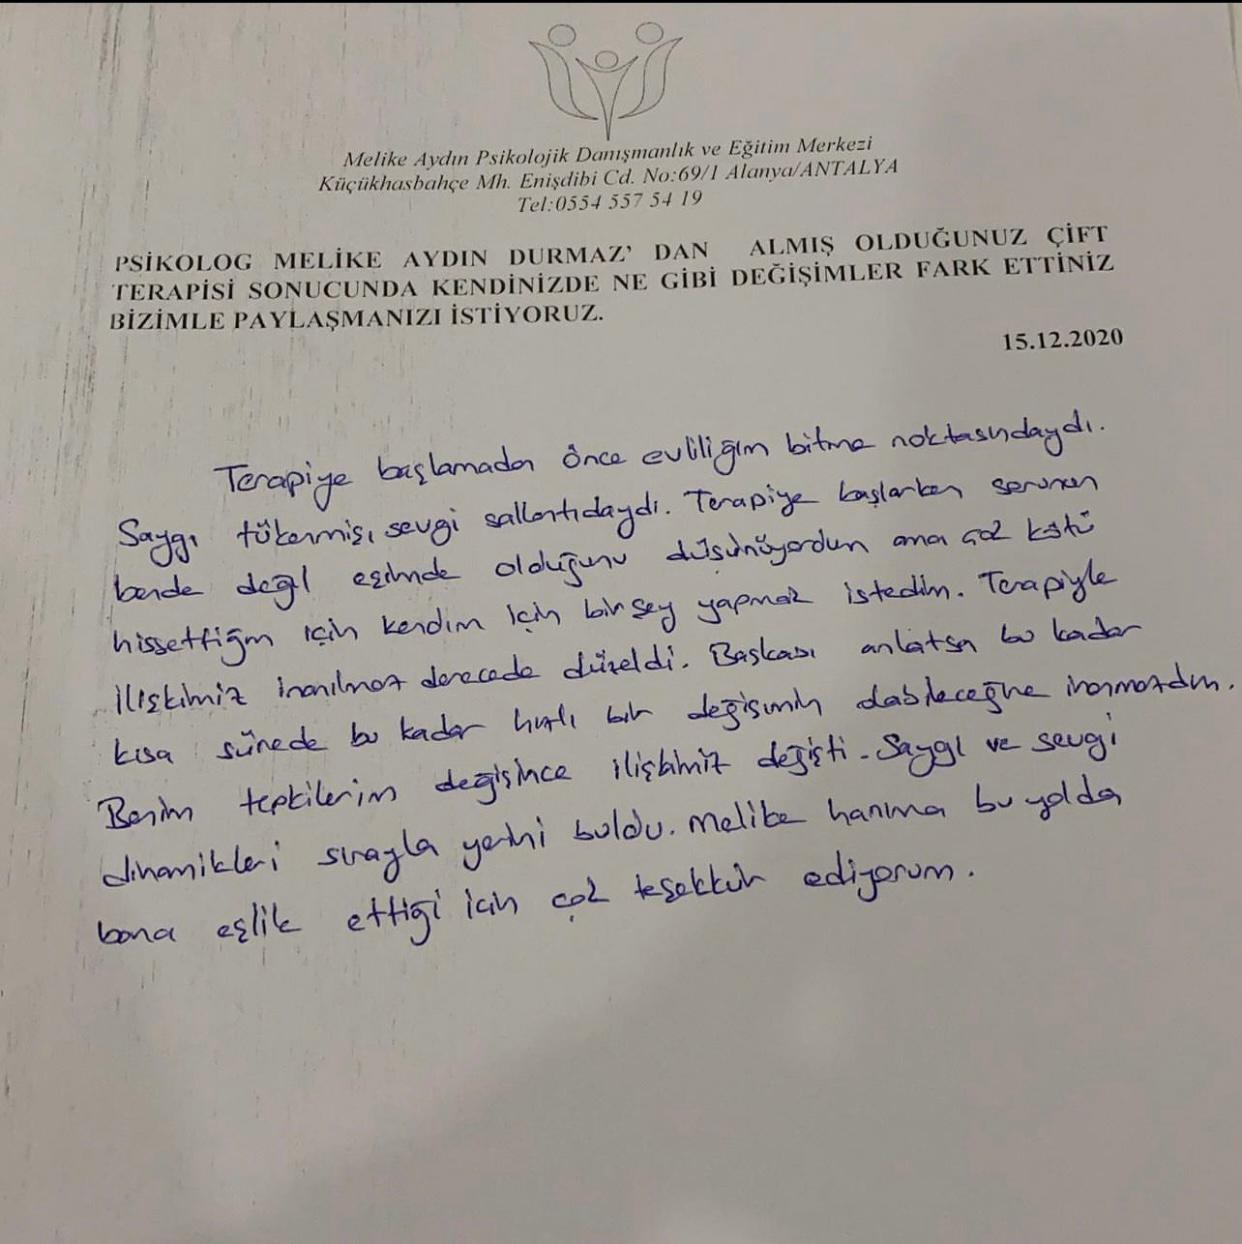 Melike Aydın Psikolojik Danışmanlık ve Eğitim Merkezi
Küçükhasbahçe Mh. Enişdibi Cd. No:69/1 Alanya/ANTALYA
Tel:0554 557 54 19
PSİKOLOG MELİKE AYDIN DURMAZ' DAN ALMIŞ OLDUĞUNUZ ÇİFT
TERAPİSİ SONUCUNDA KENDİNİZDE NE GİBİ DEĞİŞİMLER FARK ETTİNİZ
BİZİMLE PAYLAŞMANIZI İSTİYORUZ.
15.12.2020
Terapiye başlamadan önce evliliğim bitme noktasındaydı.
Saygı tükenmiş, sevgi sallantıdaydı. Terapiye başlarken sorunun
bende değil eşimde olduğunu düşünüyordum ama çok kötü
hissettiğim için kendim için bir şey yapmak istedim. Terapiyle
ilişkimiz inanılmaz derecede düzeldi. Başkası anlatsa bu kadar
kısa sürede bu kadar hızlı bir değişimin olabileceğine inanmazdım.
Benim tepkilerim değişince ilişkimiz değişti. Saygı ve sevgi
dinamikleri sırayla yerini buldu. Melike hanıma bu yolda
bana eşlik ettiği için çok teşekkür ediyorum.